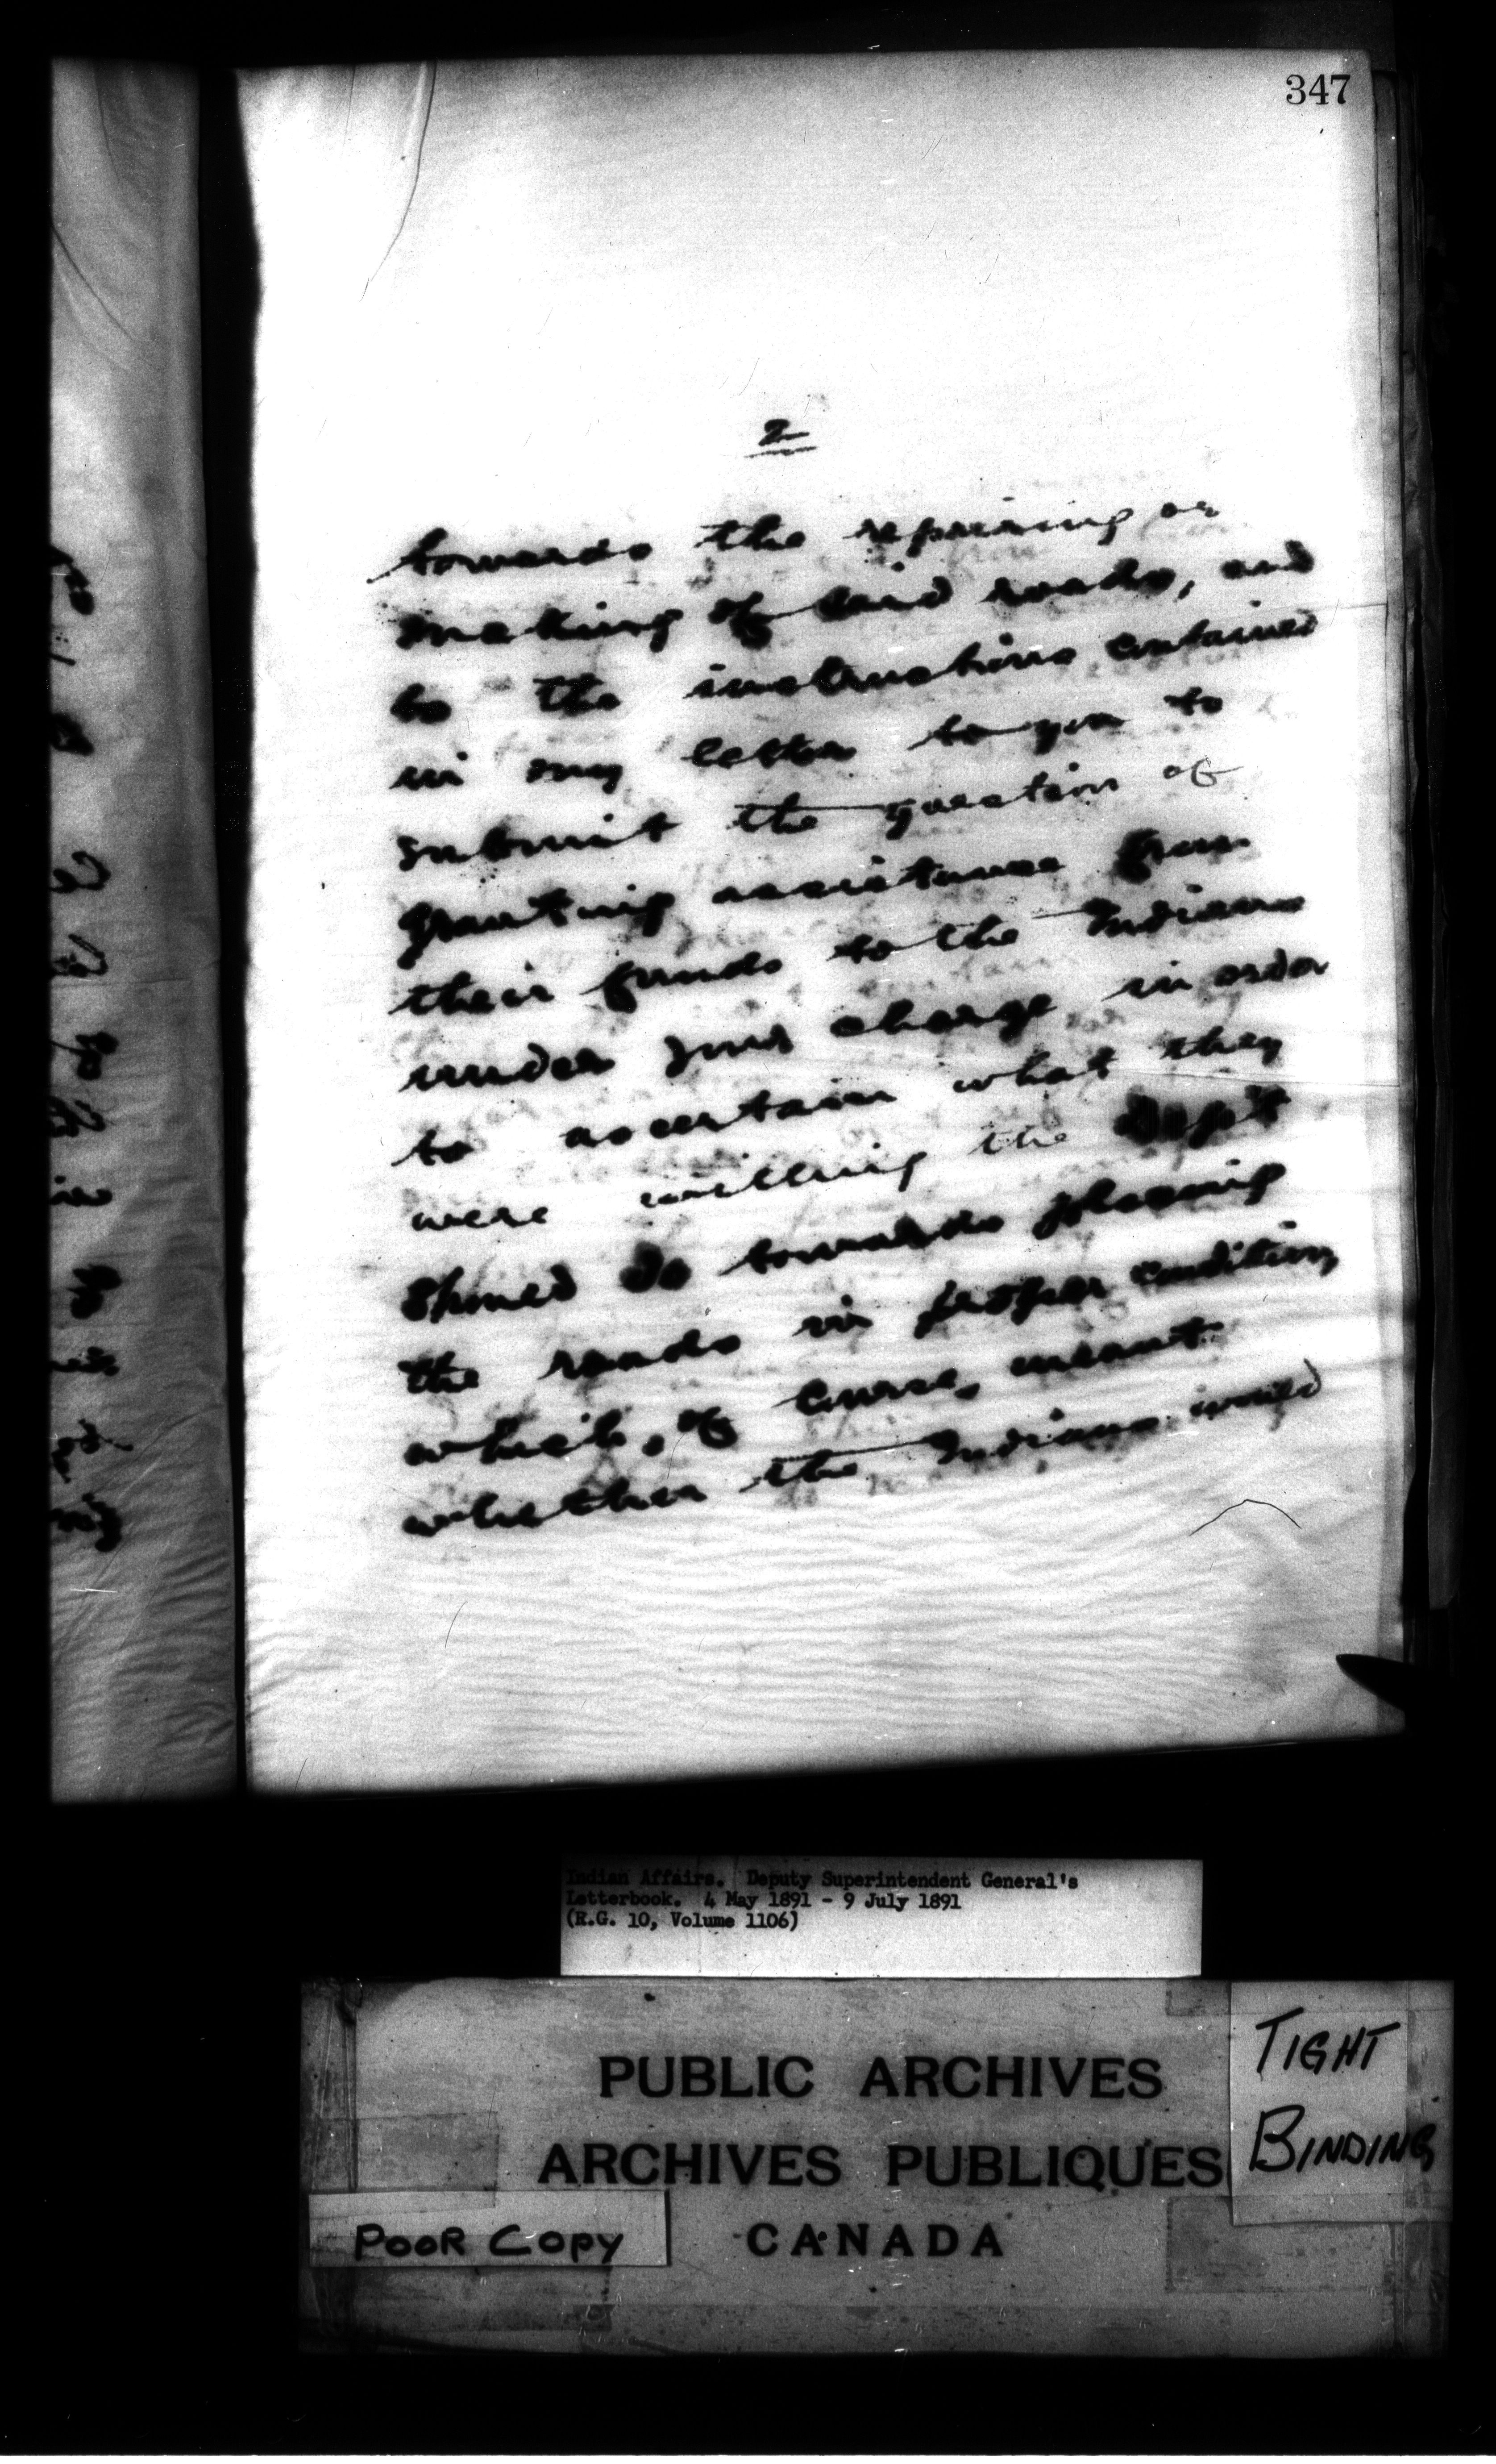 347
2
towards the repairing or
making of said roads, and
to the instructions contained
in my letter to you to
submit the question of
granting assistance from
their funds to the Indians
under your charge in order
to ascertain what they
were willing the Dep't
should do towards placing
the roads in proper condition,
which, of course, meant
whether the Indians would
Indian Affairs. Deputy Superintendent General's
Letterbook. 4 May 1891 - 9 July 1891
(R.G. 10, Volume 1106)
PUBLIC ARCHIVES
ARCHIVES PUBLIQUES
CANADA
TIGHT
BINDING
POOR COPY